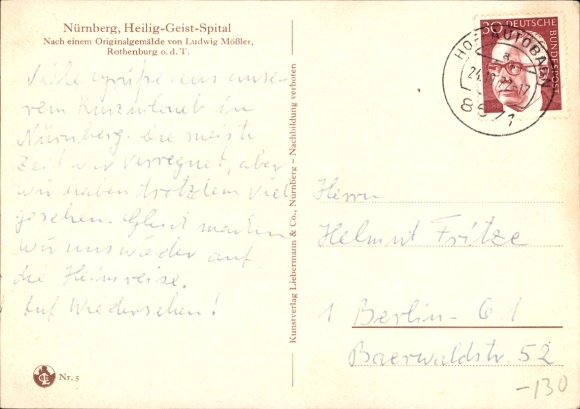 Nürnberg, Heilig-Geist-Spital
Nach einem Originalgemälde von Ludwig Mößler,
Rothenburg o. d. T.
Liebe Grüße aus unse-
rem Kurzurlaub in
Nürnberg. Die meiste
Zeit war verregnet, aber
wir haben trotzdem viel
gesehen. Gleich machen
wir uns wieder auf
die Heimreise.
Auf Wiedersehen!
Nr. 5
Kunstverlag Liebermann & Co., Nürnberg – Nachbildung verboten
30 DEUTSCHE
BUNDESPOST
8671
Herrn
Helmut Fritze
1 Berlin-61
Baerwaldstr. 52
-130